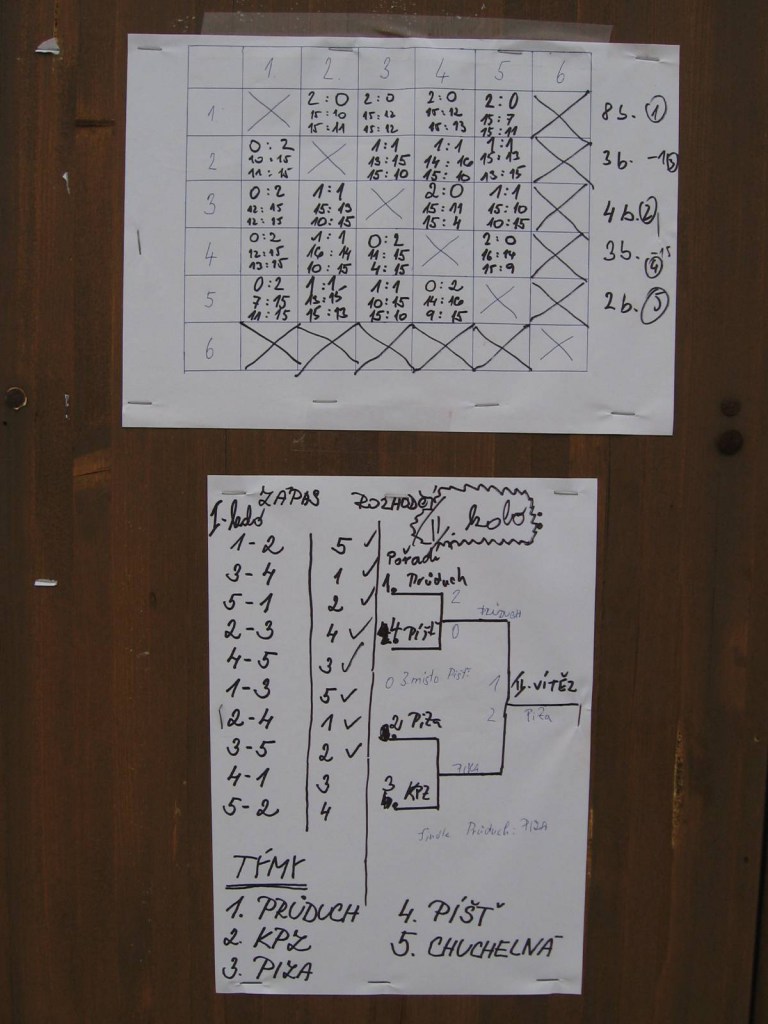 1. 2. 3 4 5 6
1 2:0 2:0 2:0 2:0 8b. 1
15:10 15:12 15:12 15:7
15:11 15:12 15:13 15:11
2 0:2 1:1 1:1 1:1 3b.
10:15 13:15 14:16 15:13
11:15 15:10 15:10 13:15
3 0:2 1:1 2:0 1:1 4b. 2
12:15 15:13 15:11 15:10
12:15 10:15 15:4 10:15
4 0:2 1:1 0:2 2:0 3b. -15 4
12:15 16:14 11:15 16:14
13:15 10:15 4:15 15:9
5 0:2 1:1 1:1 0:2 2b. 5
7:15 13:15 10:15 14:16
11:15 15:13 15:10 9:15
6
ZÁPAS ROZHODČÍ
I. kolo
II. kolo
1-2 5 ✓
3-4 1 ✓
5-1 2 ✓
2-3 4 ✓
4-5 3 ✓
1-3 5 ✓
2-4 1 ✓
3-5 2 ✓
4-1 3
5-2 4
Pořadí
1. Průduch 2
PRŮDUCH
4. Píšť 0
0 3 místo Píšť
1 II. VÍTĚZ
2 Píza
2. Píza
PIZA
3. KPZ
Průduch - PIZA
TÝMY
1. PRŮDUCH
2. KPZ
3. PIZA
4. PÍŠŤ
5. CHUCHELNÁ